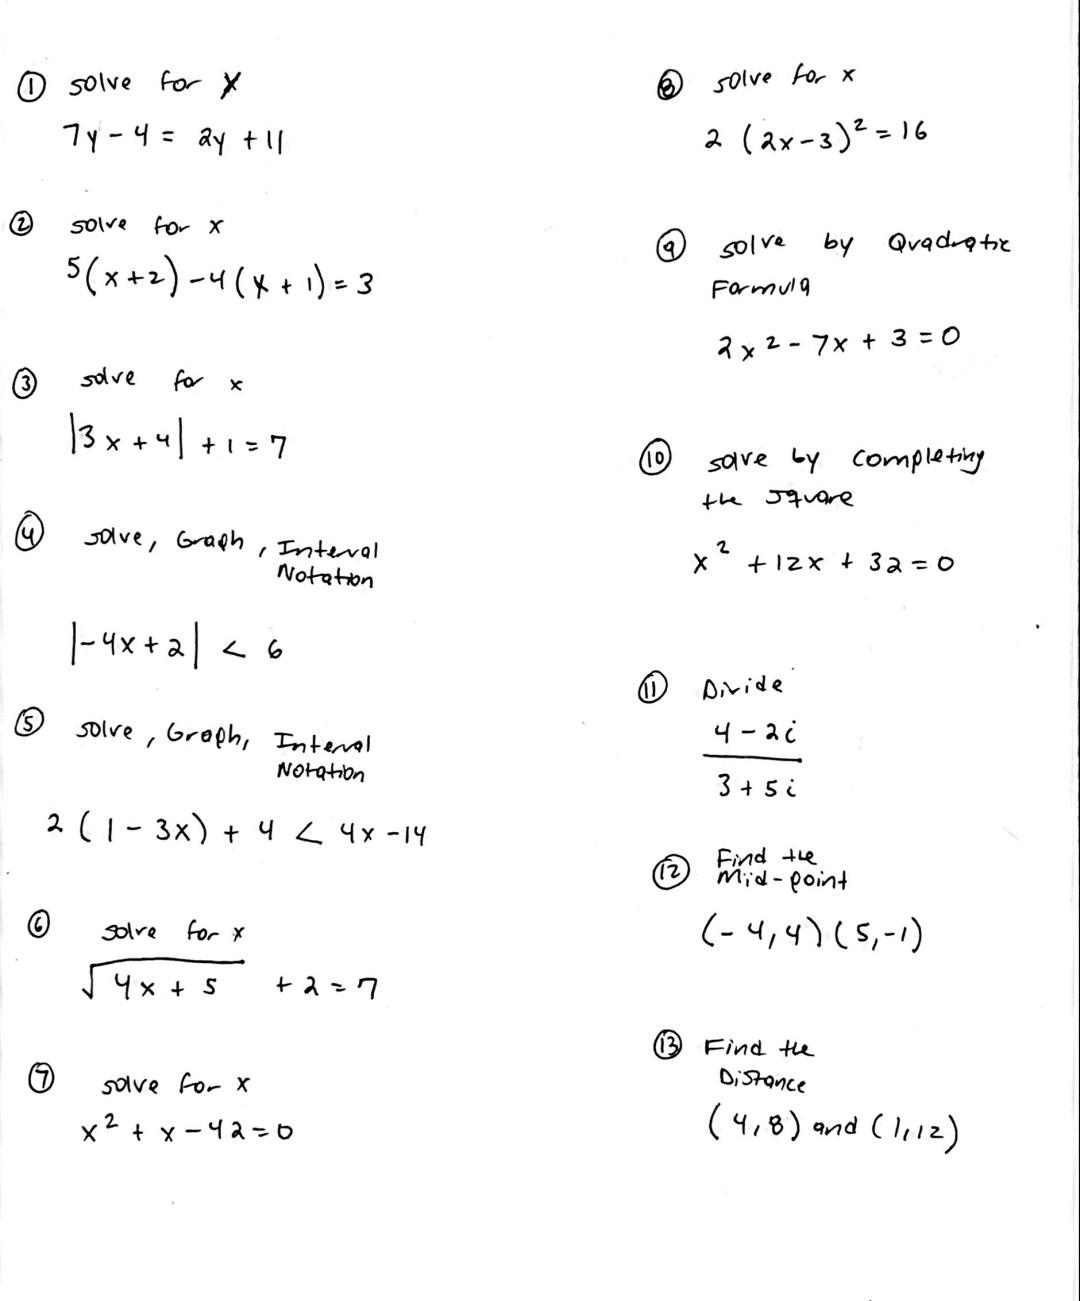 ① solve for y
7y - 4 = 2y + 11
② solve for x
5(x+2) - 4(x + 1) = 3
③ solve for x
|3x + 4| + 1 = 7
④ solve, Graph, Interval
Notation
|-4x + 2| < 6
⑤ solve, Graph, Interval
Notation
2(1 - 3x) + 4 < 4x - 14
⑥ solve for x
√4x + 5 + 2 = 7
⑦ solve for x
x² + x - 42 = 0
⑧ solve for x
2(2x-3)² = 16
⑨ solve by Quadratic
Formula
2x² - 7x + 3 = 0
⑩ solve by completing
the square
x² + 12x + 32 = 0
⑪ Divide
4 - 2i
3 + 5i
⑫ Find the
Mid-point
(-4,4)(5,-1)
⑬ Find the
Distance
(4,8) and (1,12)